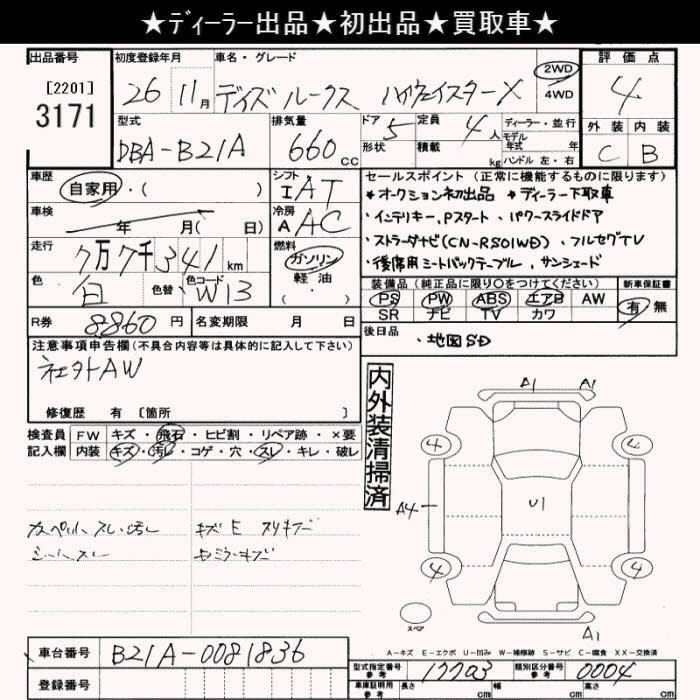 ★ディーラー出品★初出品★買取車★
出品番号 初度登録年月 車名・グレード 評価点
[2201]
3171
26 11月 デイズ ルークス ハイウェイスターX 2WD 4WD 4
型式 排気量 ドア 5 定員 4人 ディーラー・並行 外装 内装
DBA-B21A 660cc 形状 積載 kg モデル年式 年 ハンドル 左・右 C B
車歴 自家用・( ) シフト I AT
セールスポイント(正常に機能するものに限ります)
*オークション初出品 *ディーラー下取車
車検 年 月( 日) 冷房 A AC
・インテリキー、Pスタート ・パワースライドドア
走行 7万7千341km 燃料 ガソリン 軽油 ( )
・ストラーダナビ(CN-RS01WD)、フルセグTV
・後席用シートバックテーブル、サンシェード
色 白 色替 色コード W13
装備品(純正品に限り○をつけてください) 新車保証書
PS PW ABS エアB AW 有 無
SR ナビ TV カワ
R券 8860円 名変期限 月 日
後日品 ・地図SD
注意事項申告欄(不具合内容等は具体的に記入して下さい)
社外AW
修復歴 有 [箇所 ]
内外装清掃済
検査員 FW キズ・飛石・ヒビ割・リペア跡・×要
記入欄 内装 キズ・汚レ・コゲ・穴・スレ・キレ・破レ
カーペット、スレ・汚レ
シート、スレ
キズE スリキズ
A1 A1
4 4
A4 U1
4 4
スペア
A1
A-キズ E-エクボ U-凹み W-補修跡 S-サビ C-腐食 XX-交換済
車台番号 B21A-0081836
登録番号
型式指定番号 参考 17703 類別区分番号 参考 0004
車庫証明用 参考 長さ cm 幅 cm 高さ cm